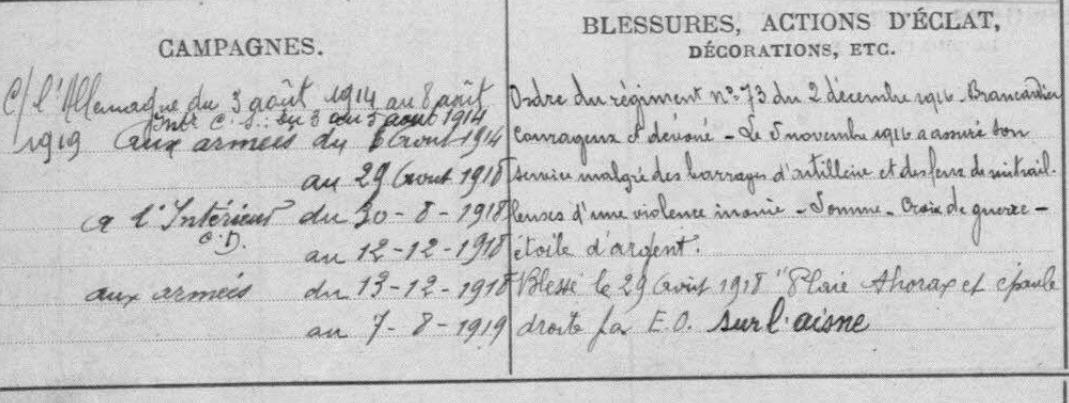 CAMPAGNES.
C/ l'Allemagne du 3 août 1914 au 8 août
Intr C. S. : du 3 au 5 août 1914
1919 aux armées du 6 Août 1914
au 29 Août 1918
à l'Intérieur du 30-8-1918
C.D. au 12-12-1918
aux armées du 13-12-1918
au 7-8-1919
BLESSURES, ACTIONS D'ÉCLAT,
DÉCORATIONS, ETC.
Ordre du régiment n° 73 du 2 décembre 1916 - Brancardier
courageux et dévoué - Le 5 novembre 1916 a assuré son
service malgré des barrages d'artillerie et des feux de mitrail-
leuses d'une violence inouie - Somme - Croix de guerre -
étoile d'argent.
Blessé le 29 Août 1918 "Plaie thorax et épaule
droite par E.O. sur l'aisne